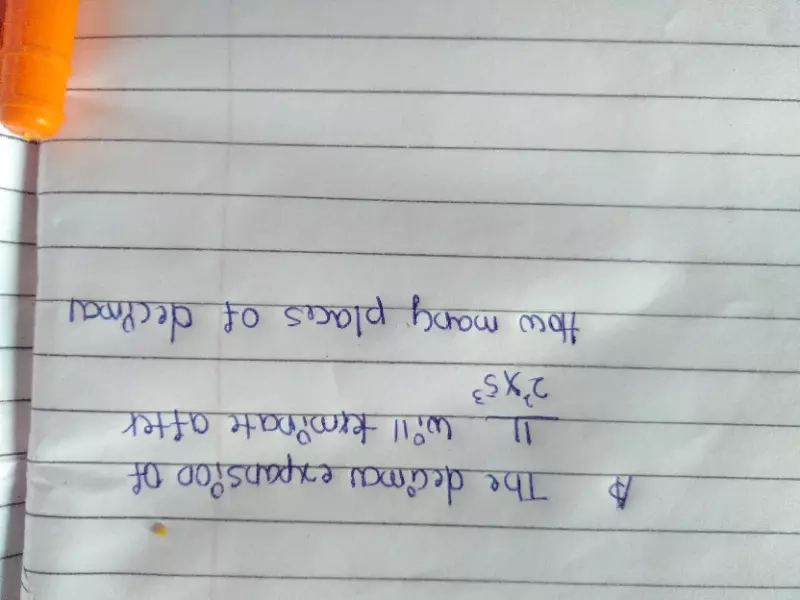 A The decimal expansion of
11/2²x5³ will terminate after
How many places of decimal